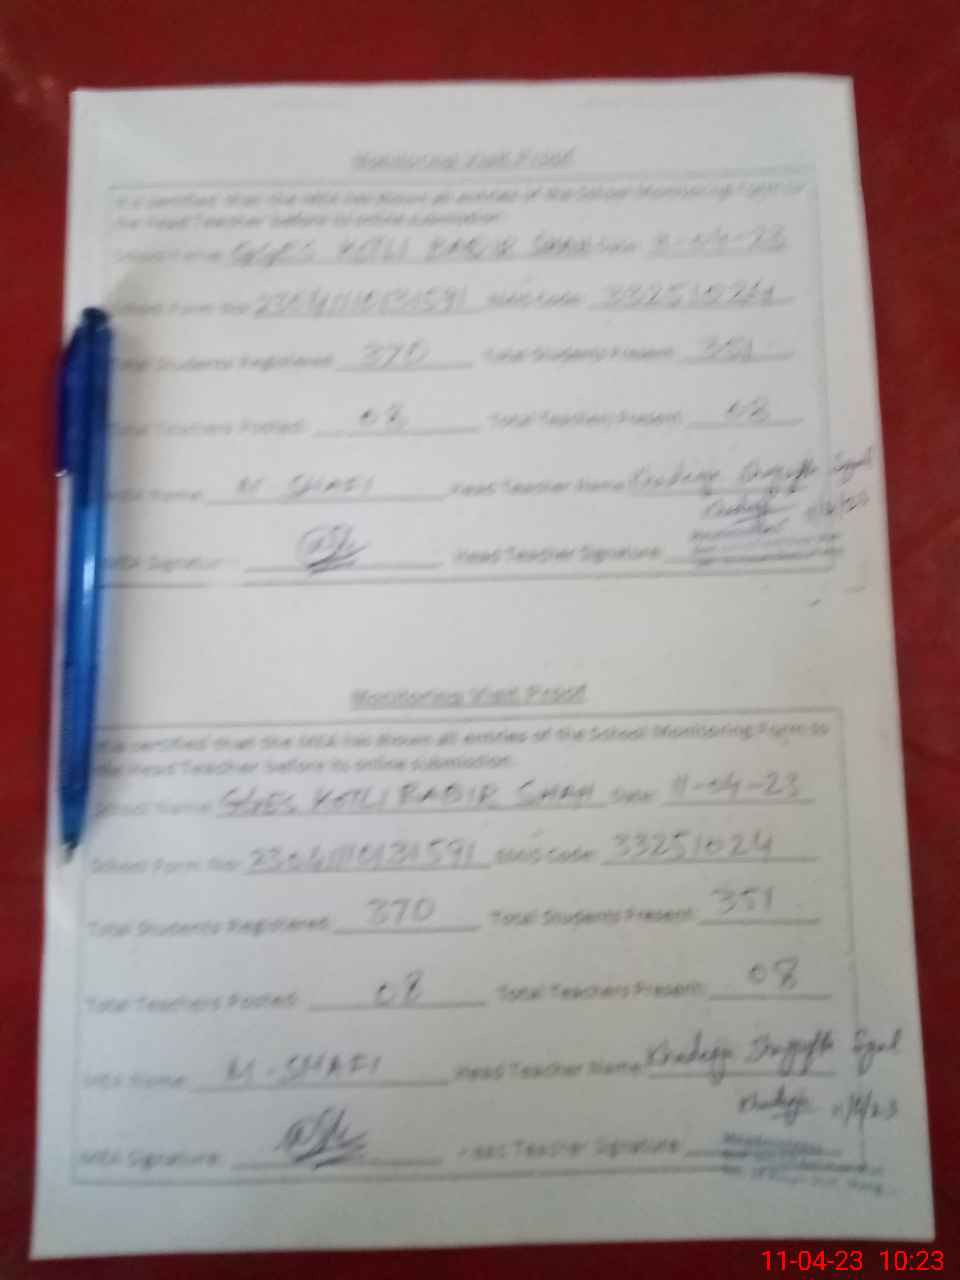 Monitoring Visit Proof
It is certified that the MEA has shown all entries of the School Monitoring Form to
the Head Teacher before its online submission.
School Name: GGES KOTLI BAQIR SHAH Date: 11-04-23
School Form No: 23041110131591 EMIS Code: 33251024
Total Students Registered: 370 Total Students Present: 351
Total Teachers Posted: 08 Total Teachers Present: 08
MEA Name: M. SHAFI Head Teacher Name: Khadija Shagufta
MEA Signature: Head Teacher Signature:
Monitoring Visit Proof
It is certified that the MEA has shown all entries of the School Monitoring Form to
the Head Teacher before its online submission.
School Name: GGES KOTLI BAQIR SHAH Date: 11-04-23
School Form No: 23041110131591 EMIS Code: 33251024
Total Students Registered: 370 Total Students Present: 351
Total Teachers Posted: 08 Total Teachers Present: 08
MEA Name: M. SHAFI Head Teacher Name: Khadija Shagufta
Khadija 11/4/23
MEA Signature: Head Teacher Signature:
11-04-23 10:23